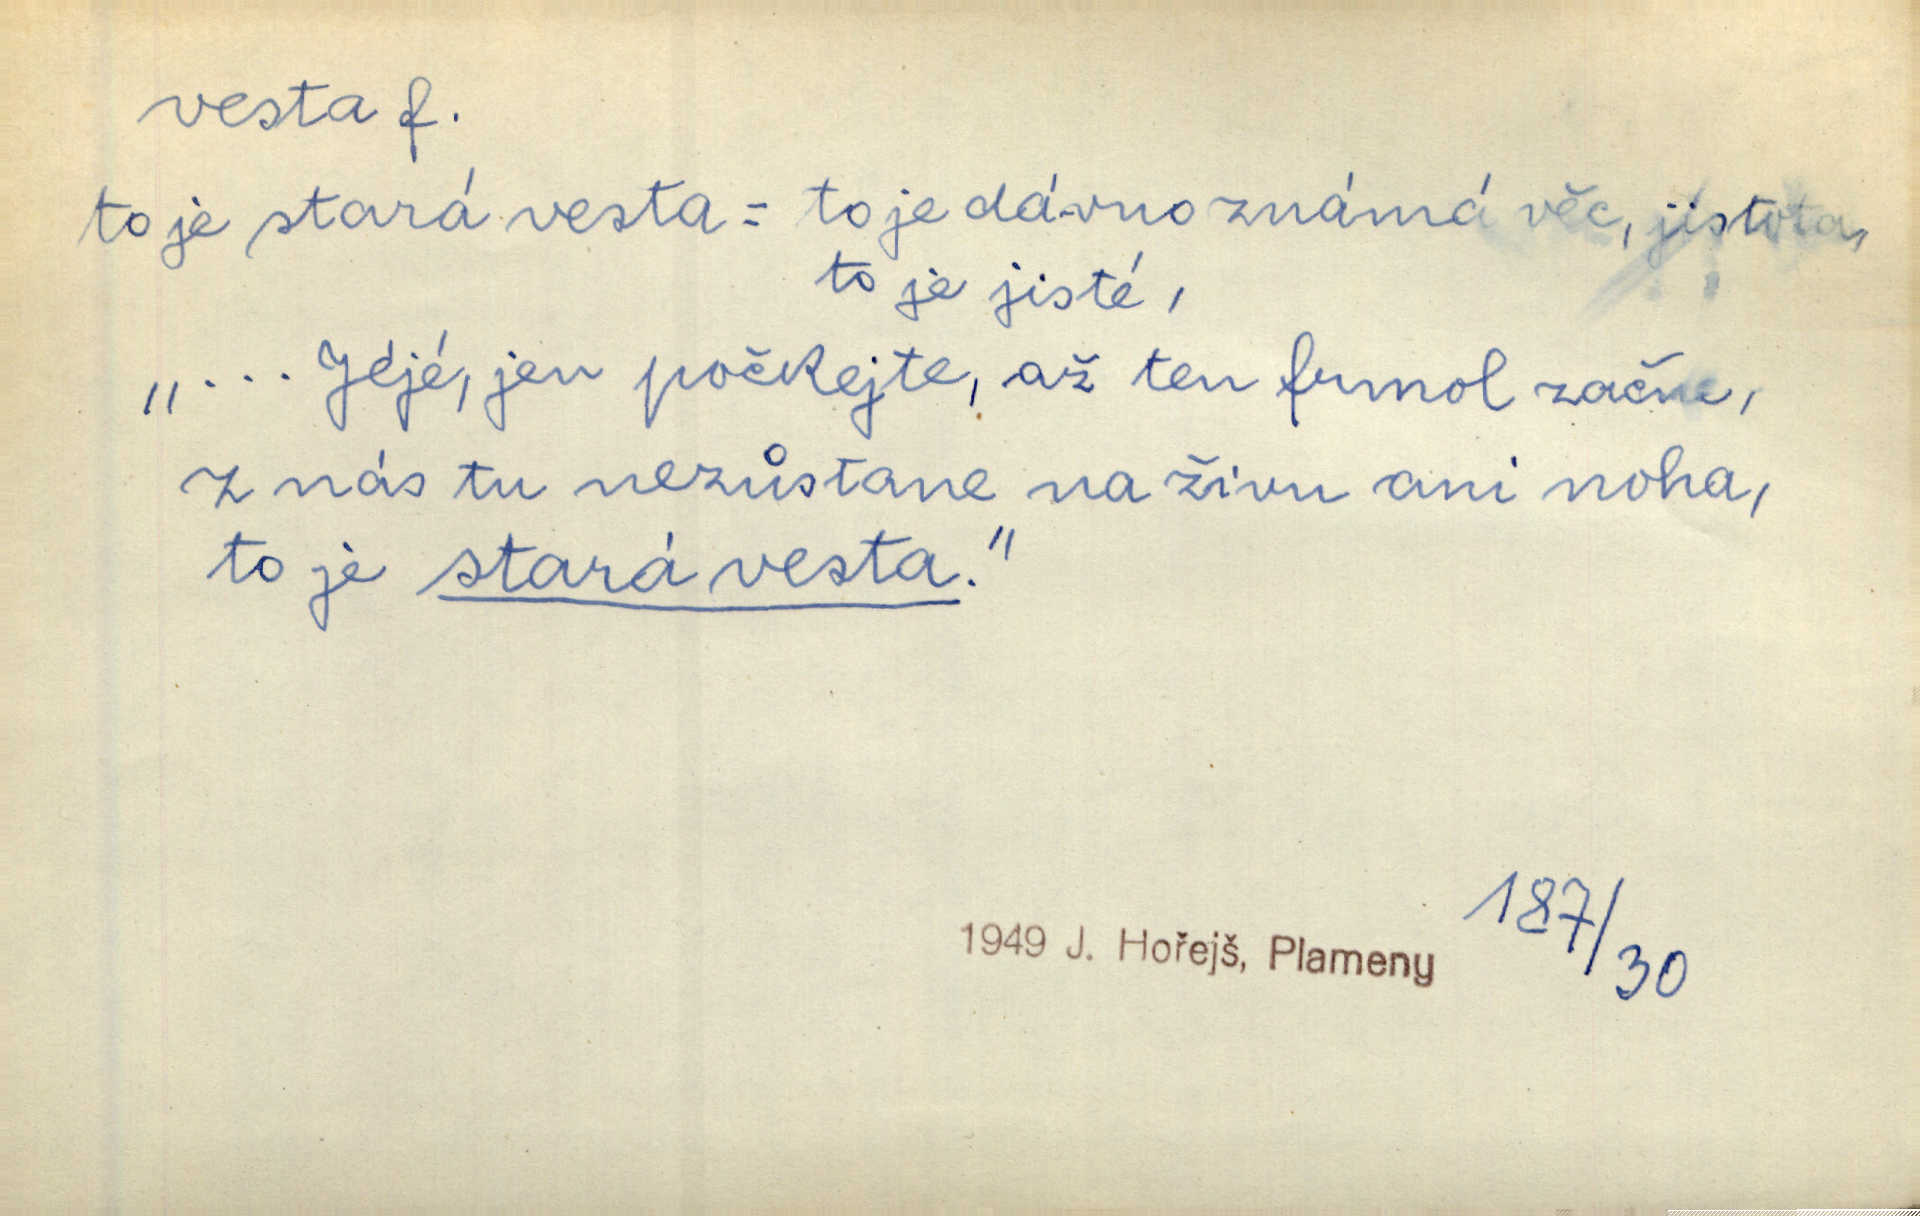 vesta f.
to je stará vesta = to je dávno známá věc, jistota,
to je jisté,
„... Jéjé, jen počkejte, až ten frmol začne,
z nás tu nezůstane na živu ani noha,
to je stará vesta."
187/30
1949 J. Hořejš, Plameny